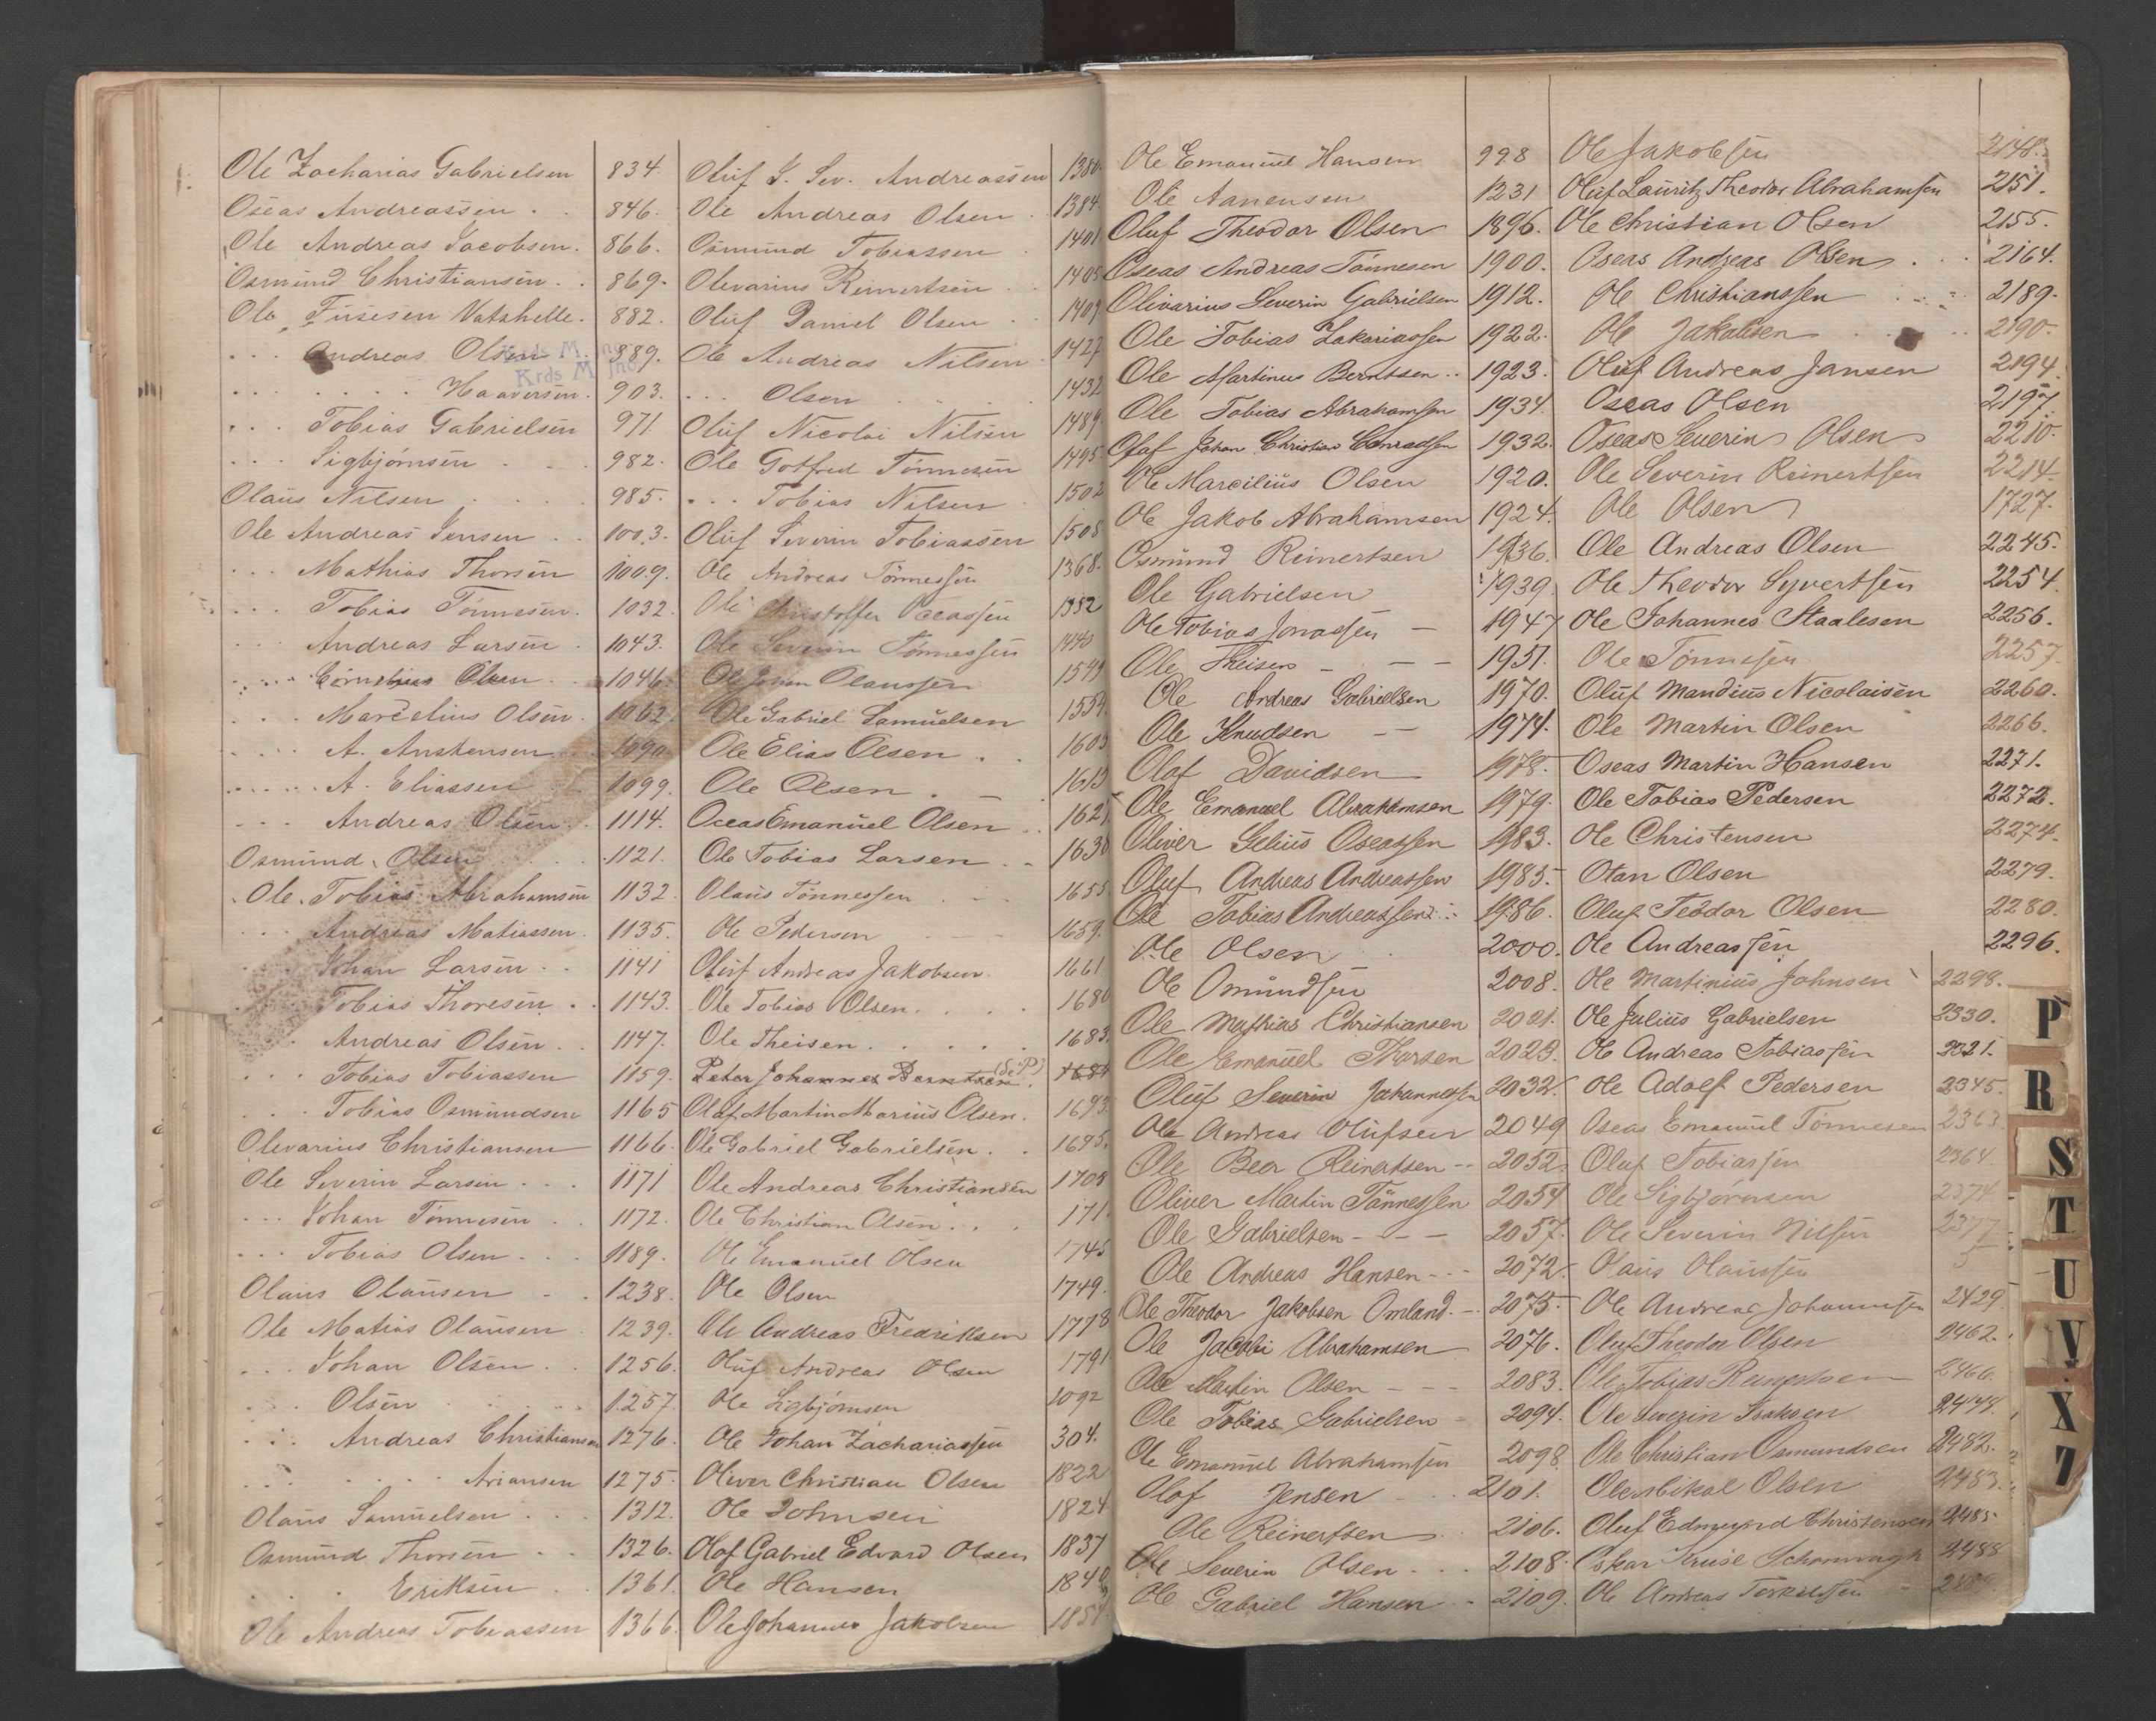 Ole Zacharias Gabrielsen 834.
Oseas Andreassen . . 846.
Ole Andreas Jacobsen. 866.
Osmund Christiansen . . 869.
Ole Natshelle. 882.
. . . Andreas Olsen 889.
Krds M. Jno
Krds M Jno
. . . . . . Haaversen. 903.
. . . Tobias Gabrielsen 971.
. . . Sigbjørnsen . . . 982.
Olaus Nilsen . . . . 985.
Ole Andreas Jensen . . 1003.
. . . Mathias Thorsen 1009.
. . . Tobias Tønnesen. 1032.
. . . Andreas Larsen . 1043.
. . . . Cornelius Olsen . . 1046.
. . . Marcelius Olsen. 1062.
. . . . A. Anstensen 1090.
. . . . . A. Eliassen 1099.
. . . Andreas Olsen . 1114.
Osmund Olsen . . . . 1121.
Ole Tobias Abrahamsen 1132.
. . . Andreas Matiassen. 1135.
. . . Johan Larsen . . 1141
. . . Tobias Thoresen . . 1143.
. . Andreas Olsen . . 1147.
. . . Tobias Tobiassen 1159.
. . . Tobias Osmundsen 1165
Olevarius Christiansen 1166.
Ole Severin Larsen . . . 1171
. . . Johan Tønnesen . . 1172.
. . . Tobias Olsen . . . 1189.
Olaus Olausen . . 1238.
Ole Matias Olausen . 1239.
. . . Johan Olsen . . 1256.
. . . Olsen . . . . . 1257.
. . . Andreas Christiansen 1276.
. . . . . . Ariansen 1275.
Olaus Samuelsen . . . 1312.
Osmund Thorsen . . 1326.
. . . Eriksen . . 1361.
Ole Andreas Tobiassen 1366.
Oluf S. Sev. Andreassen 1380
Ole Andreas Olsen . . 1384
Osmund Tobiassen . 1401
Olevarius Reinertsen . . 1405
Oluf Daniel Olsen . . 1409
Ole Andreas Nilsen . 1427
. . . Olsen . . . . . 1432
Oluf Nicolai Nilsen 1489
Ole Gotfred Tønnesen 1495
. . . Tobias Nilsen . 1502
Oluf Severin Tobiassen 1508
Ole Andreas Tønnessen 1368.
Ole Christoffer Oseassen 1382
Ole Severin Tønnessen
Ole Johan Olaussen 1549
Ole Gabriel Samuelsen 1559
Ole Elias Olsen . . 1603
Ole Olsen . — 1613
Oceas Emanuel Olsen . . 1625
Ole Tobias Larsen . . 1630
Olaus Tønnessen . . . 1655
Ole Pedersen 1659.
Oluf Andreas Jakobsen 1661
Ole Tobias Olsen. . . . 1680
Ole Theisen . . . . . . 1683.
Peter Johannes Berntsen (Se P) . 1684
Olaf Martin Marius Olsen. 1693.
Ole Gabriel Gabrielsen. . . 1695.
Ole Andreas Christiansen 1708
Ole Christian Olsen . . . 171
Ole Emanuel Olsen 1745
Ole Olsen 1749.
Ole Andreas Fredriksen 1778
Oluf Andreas Olsen 1791
Ole Sigbjørnsen 1092
Ole Johan Zachariassen 304.
Oliver Christian Olsen 1822
Ole Johnsen 1824
Olaf Gabriel Edvard Olsen 1837
Ole Hansen 1840
Ole Johannes Jakobsen 1854.
Ole Emanuel Hansen 998
Ole Aanensen 1231
Oluf Theodor Olsen 1896.
Oseas Andreas Tønnesen 1900.
Olivarius Severin Gabrielsen 1912.
Ole Tobias Zakariassen 1922.
Ole Martinus Berntsen . . 1923.
Ole Tobias Abrahamsen 1934.
Olaf Johan Christian Conradsen 1932.
Ole Marcilius Olsen 1920.
Ole Jakob Abrahamsen 1924.
Osmund Reinertsen 1936.
Ole Gabrielsen 1939.
Ole Tobias Jonassen — 1947
Ole Theisen — — — 1951.
Ole Andreas Gabrielsen 1970.
Ole Knudsen — — 1974.
Olaf Davidsen 1978.
Ole Emanuel Abrahamsen 1979.
Oliver Selius Oseassen 1983.
Oluf Andreas Andreassen 1985.
Ole Tobias Andreassen . . 1986.
Ole Olsen . 2000.
Ole Omundsen 2008.
Ole Mathias Christiansen 2021.
Ole Emanuel Thorsen 2023.
Oluf Severin Johannessen 2032.
Ole Andreas Olufsen 2049
Ole Beer Reinertsen -- 2052.
Oliver Martin Tønnessen 2054
Ole Gabrielsen - - — 2057.
Ole Andreas Hansen - - - 2072.
Ole Theodor Jakobsen Omland. - . 2075.
Ole Jacobi Abrahamsen 2076.
Ole Martin Olsen — — — 2083.
Ole Tobias Gabrielsen - 2094.
Ole Emanuel Abrahamsen 2098.
Olaf Jensen 2101.
Ole Reinertsen . . 2106.
Ole Severin Olsen . . . 2108.
Ole Gabriel Hansen . . 2109.
Ole Jakobsen 2148.
Oluf Lauritz Theodor Abrahamsen 2151.
Ole Christian Olsen 2155.
Oseas Andreas Olsen . . . 2164.
Ole Christianssen . . . 2189.
Ole Jakobsen . . . 2190.
Oluf Andreas Jansen 2194.
Oseas Olsen 2197.
Oseas Severin Olsen 2210.
Ole Severin Reinertsen 2214.
Ole Olsen 1727.
Ole Andreas Olsen 2245.
Ole Theodor Syvertsen 2254.
Ole Johannes Staalesen 2256.
Ole Tønnesen 2257.
Oluf Mandius Nicolaisen 2260.
Ole Martin Olsen 2266.
Oseas Martin Hansen 2271.
Ole Tobias Pedersen 2272.
Ole Christensen 2274.
Otan Olsen 2279.
Oluf Teodor Olsen 2280.
Ole Andreassen 2296.
Ole Martinius Johnsen 2298.
Ole Julius Gabrielsen 2330.
Ole Andreas Tobiassen 2321.
Ole Adolf Pedersen 2345.
Oseas Emanuel Tønnesen 2363.
Oluf Tobiassen 2364.
Ole Sigbjørnsen 2374
Ole Severin Nilsen 2377
Olaus Olaussen 5
Ole Andreas Johannesen 2429.
Oluf Theodor Olsen 2462.
Ole Tobias 2466.
Ole Severin Isaksen
Ole Christian Osmundsen 2482.
Ole Mikal Olsen 2483.
Oluf Edmund Christensen 2485
Oskar Kruse 2488
Ole Andreas Terkelsen
P
R
S
T
U
V
X
Z